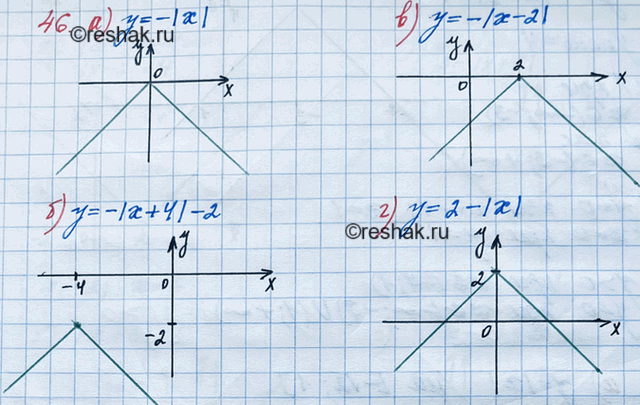 46. а) y = -|x|
©reshak.ru
y
0
x
в) y = -|x-2|
y
2
0
x
б) y = -|x+4| -2
y
-4
0
x
-2
г) y = 2 -|x|
©reshak.ru
y
2
0
x